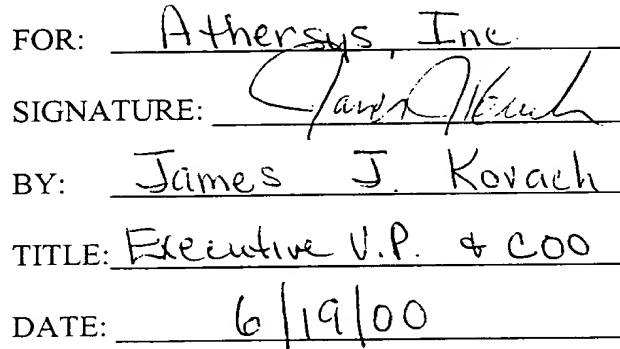 FOR: Athersys, Inc.
SIGNATURE: James J Kovach
BY: James J. Kovach
TITLE: Executive V.P. & COO
DATE: 6/19/00